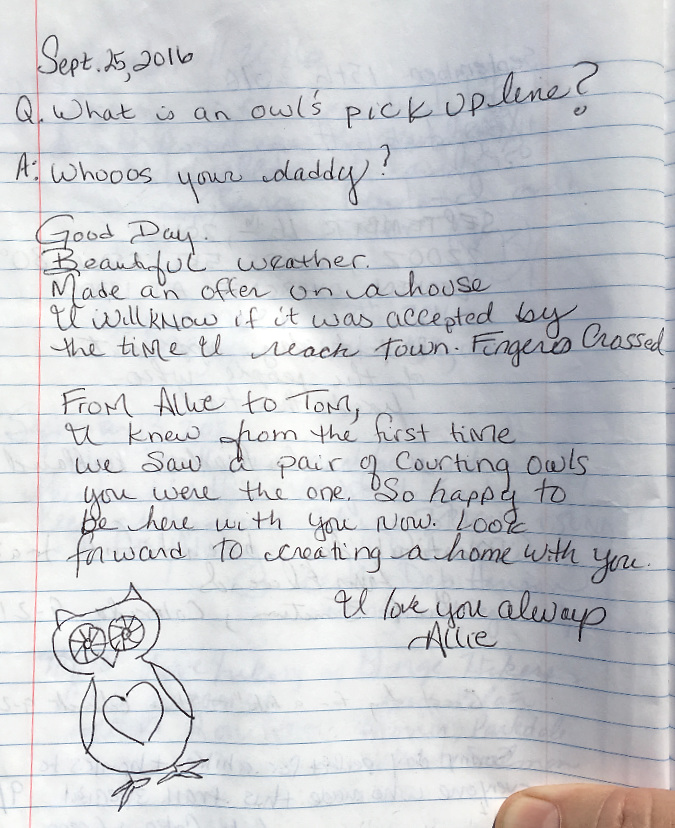 Sept. 25, 2016
Q. What is an owl's pick up line?
A: Whooos your daddy?
Good Day.
Beautiful weather.
Made an offer on a house
I will know if it was accepted by
the time I reach town. Fingers Crossed
From Allie to Tom,
I knew from the first time
we saw a pair of courting owls
you were the one. So happy to
be here with you now. Look
forward to creating a home with you.
I love you always
Allie